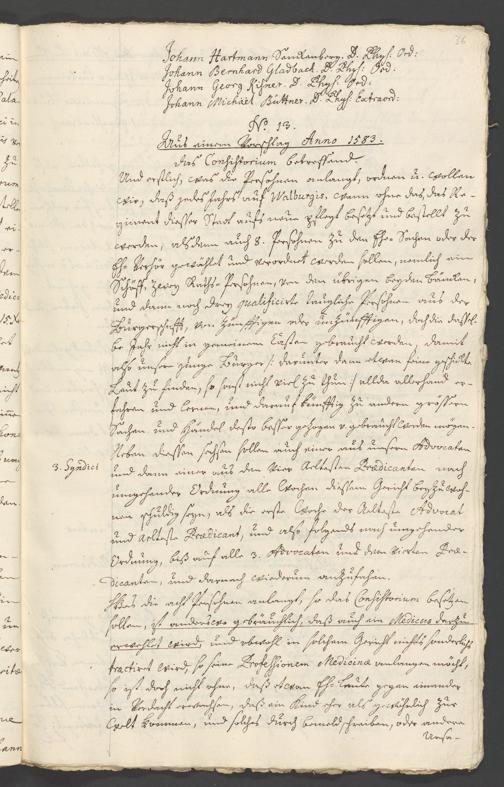 36
Johann Hartmann Senckenberg. D. Phys: Ord:
Johann Bernhard Gladbach. D. Phys: Ord:
Johann Georg Kisner. D. Phys: Ord:
Johann Michael Büttner. D. Phys: Extraord:
No. 13.
Aus einem Vorschlag Anno 1583.
das Consistorium betreffend.
Und erstlich, was die Persohnen anlangt, ordnen u. wollen
wir, daß jedes Jahrs auf Walburgis, wann ohne das das Re-
giment dieser Statt aufs neue pflegt besetzt und bestellt zu
werden, alsdann auch 8. Persohnen zu den Ehe-Sachen oder der
Ehe-Verhör gewählet und verordnet werden sollen, nemlich ein
Schöff, zwey Raths-Persohnen, von den übrigen beyden Bäncken,
und dann noch drey qualificirte taugliche Persohnen aus der
Bürgerschafft, von Zünfftigen oder unzünfftigen, doch die dassel-
be Jahr nicht in gemeinem Casten gebraucht werden, damit
also unser junge Bürger /: darunter dann etwan feine geschickte
Leut zu finden, so sonst nicht viel zu thun :/ allda allerhand er-
fahren und lernen, und darauf künfftig zu andern grössern
Sachen und Händel desto besser gezogen u. gebraucht werden mögen.
Neben diesen sechsen sollen auch einer aus unsern Advocaten
3. Syndici
und dann einer aus den vier Aeltesten Prædicanten nach
umgehender Ordnung alle Wochen diesem Gericht beyzuwoh-
nen schuldig seyn, als die erste Woche der Aelteste Advocat
und Aelteste Prædicant, und also folgends nach umgehender
Ordnung, biß auf alle 3. Advocaten und den vierten Præ-
dicanten, und darnach wiederum anzufahen.
Was die acht Persohnen anlangt, so das Consistorium besetzen
sollen, ist anderswo gebräuchlich, daß auch ein Medicus darzu
erwehlt wird, und obwohl in solchem Gericht nichts sonderlichs
tractirt wird, so seine Professionem Medicinæ anlangen möcht,
so ist doch nicht ohne, daß etwan Ehe-Leute gegen einander
in Verdacht erwachsen, daß ein Kind eher als gewöhnlich zur
Welt kommen, und solches durch
schreiben, oder andere
Ursa-